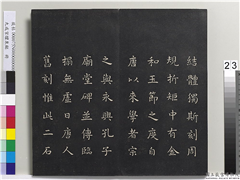 結體獨斯刻周
規折矩中有金
和玉節之度自
唐以來學者宗
之與永興孔子
廟堂碑並傳臨
榻無虛日唐人
舊刻惟此二石
23